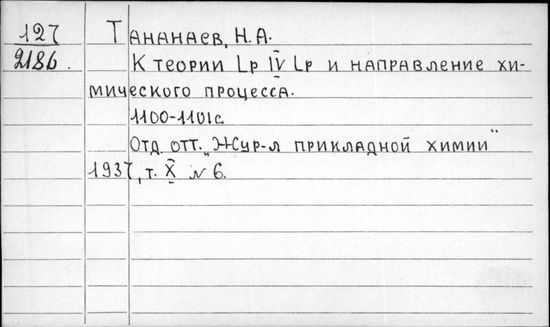 127
2186.
Тананаев, Н. А.
К теории Lp IV Lp и направление хи-
мического процесса.
1100-1101с.
Отд. отт. „Жур-л прикладной химии"
1937, т. X № 6.